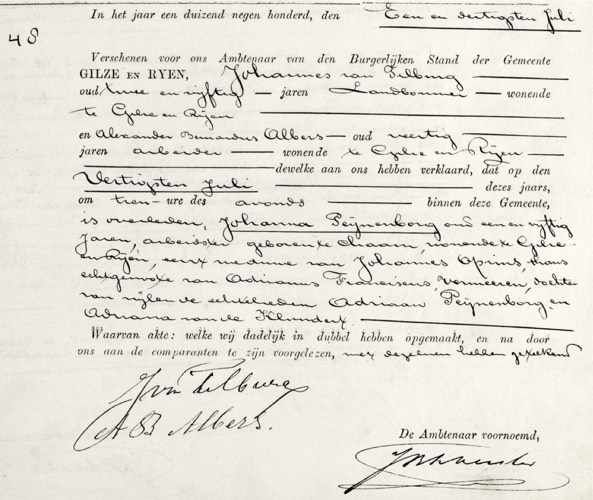 48
In het jaar een duizend negen honderd, den Een en dertigsten Juli
Verschenen voor ons Ambtenaar van den Burgerlijken Stand der Gemeente
GILZE EN RYEN, Johannes van Tilburg
oud twee en vijftig jaren Landbouwer wonende
te Gilze en Rijen
en Alexander Bernardus Albers oud veertig
jaren arbeider wonende te Gilze en Rijen
dewelke aan ons hebben verklaard, dat op den
Dertigsten Juli dezes jaars,
om tien ure des avonds binnen deze Gemeente,
is overleden, Johanna Peijnenborg oud een en vijftig
Jaren, arbeidster geboren te Chaam, wonende te Gilze
en Rijen, eerst weduwe van Johannes Oprins, thans
echtgenoote van Adrianus Franciscus Vermeeren, dochter
van wijlen de echtelieden Adriaan Peijnenborg en
Adriana van de Klundert
Waarvan akte: welke wij dadelijk in dubbel hebben opgemaakt, en na door
ons aan de comparanten te zijn voorgelezen, met dezelven hebben geteekend
J van Tilburg
A B Albers.
De Ambtenaar voornoemd,